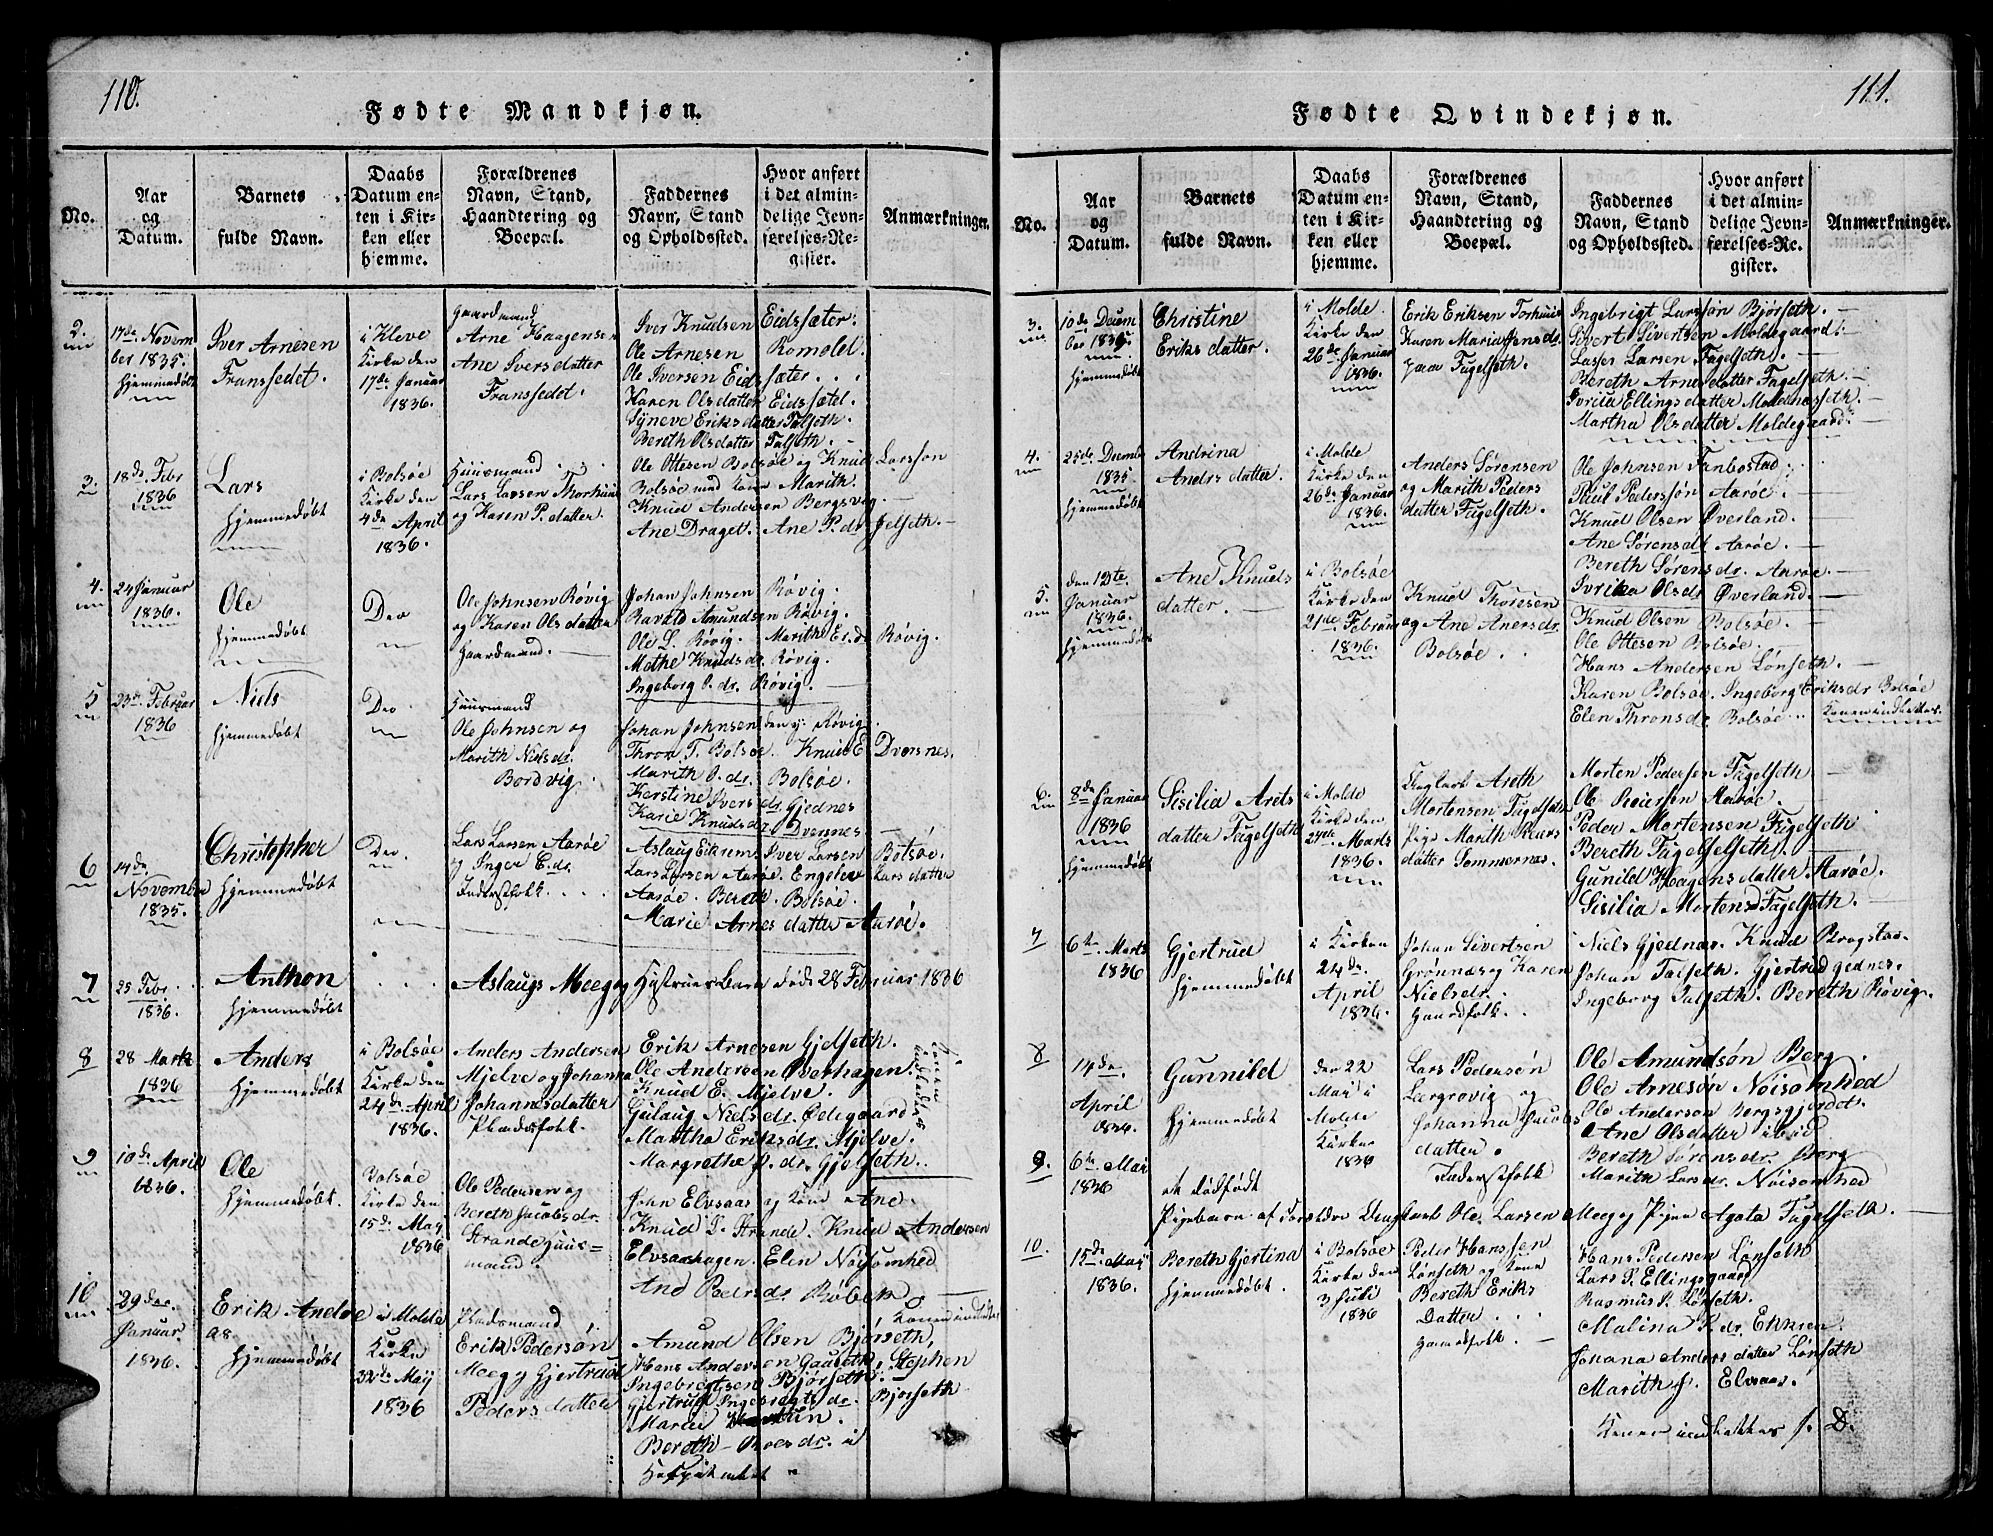 110.
Fødte Mandkjøn.
No.
Aar
og
Datum.
Barnets
fulde Navn.
Daabs
Datum en-
ten i Kir-
ken eller
hjemme.
Forældrenes
Navn, Stand,
Haandtering og
Boepæl.
Faddernes
Navn, Stand
og Opholdssted.
Hvor anført
i det almin-
delige Jevn-
førelses-Re-
gister.
Anmærkninger.
2.
17de Novem
ber 1835.
hjemmedøbt
Iver Arnesen
Franssedet.
i Kleve
Kirke den
17de Januar
1836.
Gaardmand
Arne Haagensen
Ane Iversdatter
Franssedet.
Iver Knudsen Eidsæter.
Ole Arnesen Romolel.
Ole Iversen Eidsæter.
Karen Olsdatter Eidsætel.
Syneve Eriksdatter Talseth.
Bereth Olsdatter Talseth.
3.
18de Febr
1836
Lars
hjemmedøbt
i Bolsøe
Kirke den
4de April
1836.
Huusmand
Lars Larsen Thorhuus
og Karen P.datter.
Ole Ottesen Bolsøe og Knud Larsson
Bolsøe med kone Marith.
Knud Andersen Bergsvog
Ane Draget. Ane P.dr. Jelseth.
4.
24 Januar
1836.
Ole
hjemmedøbt
Deo
Ole Johnsen Røvig
og Karen Olsdatter
Gaardmand.
Johan Johnsen Røvig.
Amundsen Røvig.
Ole L. Røvig. Marith E.dr. Røvig.
Mathe Knudsdr. Røvig.
Ingeborg O.dr. Røvig.
5
23de Februar
1836
Niels
hjemmedøbt
Deo
Huusmand
Ole Johnsen og
Marith Nielsdr.
Bordvig
Johan Johnsen den y: Røvig.
Thron T. Bolsøe. Knud E. Dversnes.
Marith O.dr. Bolsøe.
Kerstine Iversdr. Gjednes
Karie Knudsdr. Dversnes
6
14de
November
1835.
Christopher
hjemmedøbt
Deo.
Lars Larsen Aarøe
og Inger E.dr.
Inderstfolk.
Aslaug Eikrem. Iver Larsen Bolsøe.
Lars Larsen Aarøe. Engelev Larsdatter
Aarøe. Bereth Bolsøe.
Marie Arnesdatter Aarøe.
7
25 Febr.
1836.
Anthon
hjemmedøbt
Aslaugs Meeg og Hustrues Barn døde 28 Februar 1836
8
28 Marts
1836
Anders
hjemmedøbt
i Bolsøe
Kirke den
24de April
1836.
Anders Andersen
Mjelve og Johanna
Johannesdatter
Pladsfolk.
Erik Arnesen Gjelseth.
Ole Andersen Overhagen.
Knud E. Mjelve.
Gulaug Nielsdr. Ødegaard
Martha Eriksdr. Mjelve.
Margrethe J.dr. Gjelseth.
Konen
indledtes
9
10de April
1836.
Ole
hjemmedøbt
Bolsøe
Kirke den
15de May
1836
Ole Pedersen og
Bereth Jacobsdr.
Strande Huus-
mand
John Elvsaas og Kone Ane.
Knud P. Strande. Knud Andersen
Elvsaashagen. Elen Nøisomhed
And Pedersdr. Røbek
10
29de
Januar
1836.
Erik Andre
as
hjemmedøbt
i Molde
Kirke
22de May
1836
Pladsmand
Erik Pedersøn
Meeg og Gjertrud
Pedersdatter
Konen indledtes
Amund Olsen Bjørseth,
Hans Andersen Gauseth. Stephen
Ingebregtsen Bjørseth.
Gjertrud Ingebregtsdr. Bjørseth
Maren
Bereth i
Hospitalet
111.
Fødte Qvindekjøn.
No.
Aar
og
Datum.
Barnets
fulde Navn.
Daabs
Datum en-
ten i Kir-
ken eller
hjemme.
Forældrenes
Navn, Stand,
Haandtering og
Boepæl.
Faddernes
Navn, Stand
og Opholdssted.
Hvor anført
i det almin-
delige Jevn-
førelses-Re-
gister.
Anmærkninger.
3.
10de Decem
ber 1835.
hjemmedøbt
Christine
Eriksdatter.
i Molde
Kirke den
26de Januar
1836.
Erik Eriksen Torhuus
Karen Maria Jensdr.
paa Fugelseth.
Ingebrigt Larssøn Bjørseth.
Sivert Sivertsen Moldegaard.
Lasse Larsen Fagelseth.
Bereth Arnesdatter Fagelseth.
Ellingsdatter Moldenesseth.
Martha Olsdatter Moldegaard.
4.
25de Decembr
1835
hjemmedøbt
Andrina
Andrsdatter.
i Molde
Kirke den
26de Januar
1836.
Anders Sørensen
og Marith Peders
datter Fugelseth.
Ole Johnsen Fanbostad.
Poul Pederssøn Aarøe.
Knud Olsen Øverland.
Ane Sørensdt. Aarøe.
Bereth Sørensdr. Aarøe.
Olsdr. Øverland.
5.
den 12te
Januar
1836.
hjemmedøbt
Ane Knuds
datter.
i Bolsøe
Kirke den
21de Februar
1836.
Knud Thoresen
og Ane Anersdr.
Bolsøe.
Knud Olsen Bolsøe.
Ole Ottesen Bolsøe.
Hans Andersen Lønseth.
Karen Bolsøe. Ingeborg Eriksdr Bolsøe
Elen Thronsdr. Bolsøe.
Konen indledtes.
6
8de Januar
1836
hjemmedøbt
Sisilia Arets
datter Fugelseth
i Molde
Kirke den
24de Marts
1836.
Ungkarl Areth
Mortensen Fugelseth
Pige Marith Peders
datter Sommernæs.
Morten Pedersen Fugelseth
Ole Pedersen Aarøe.
Peder Mortensen Fugelseth
Bereth Fugelseth.
Gunild Hagensdatter Aarøe.
Sisilia Mortensd Fugelseth.
7
6te Marts
1836
Gjertrud
hjemmedøbt
i Kirken
24de
April
1836.
Johan Sivertsen
Grønnæs og Karen
Nielsdr.
Gaardfolk.
Niels Gjednæs. Knud Brogstad
Johan Talseth. Gjertrud Gjednes.
Ingeborg Talseth. Bereth Røvig.
8
14de
April
1836.
Gunnild
hjemmedøbt
den 22
Mai i
Molde
Kirke
1836
Lars Pedersøn
Leergrovig og
Johanna Jacobs
datter.
Inderstfolk.
Ole Amundsøn Berg.
Ole Arnesøn Nøisomhed
Ole Andersøn Bergsgjerdet.
Ane Olsdatter ibid
Bereth Sørensdr. Berg
Marith Larsdr. Nøisomhed
9.
6te May
1836
et dødfødt
Pigebarn af Forældre Ungkarl Ole Larsen Meeg og Pigen Agata Fugelseth.
10.
15de May
1836.
Bereth Gjertina
hjemmedøbt.
i Bolsøe
Kirke den
3 Juli
1836
Peder Hanssen
Lønseth og Kone
Bereth Eriks
Datter.
Gaardfolk.
Hans Pedersen Lønseth
Lars P. Ellingsgaard
Rasmus P. Lønseth.
Malina P.dr. Eikrem.
Johana Andersdatter Lønseth
Marith J. Elvsaas.
Konen indledtes s. D.